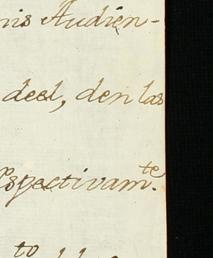 nis Audien-
deel, den las
espectivam.te
to